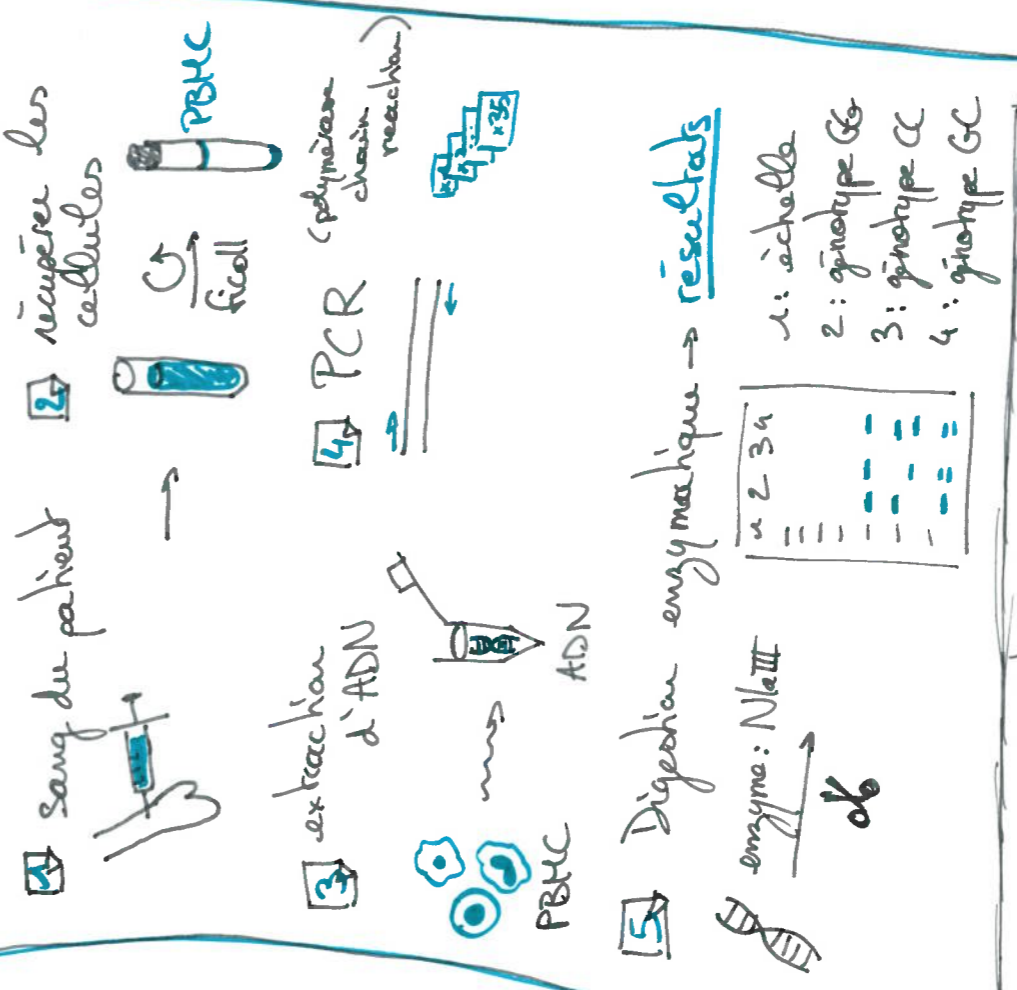 1 Sang du patient
2 récupérer les
cellules
ficoll
PBMC
3 extraction
d'ADN
PBMC
ADN
4 PCR (polymérase
chain
reaction)
x1
x2
x35
5 Digestion enzymatique → résultats
enzyme: NlaIII
1 2 3 4
1: échelle
2: génotype GG
3: génotype CC
4: génotype GC